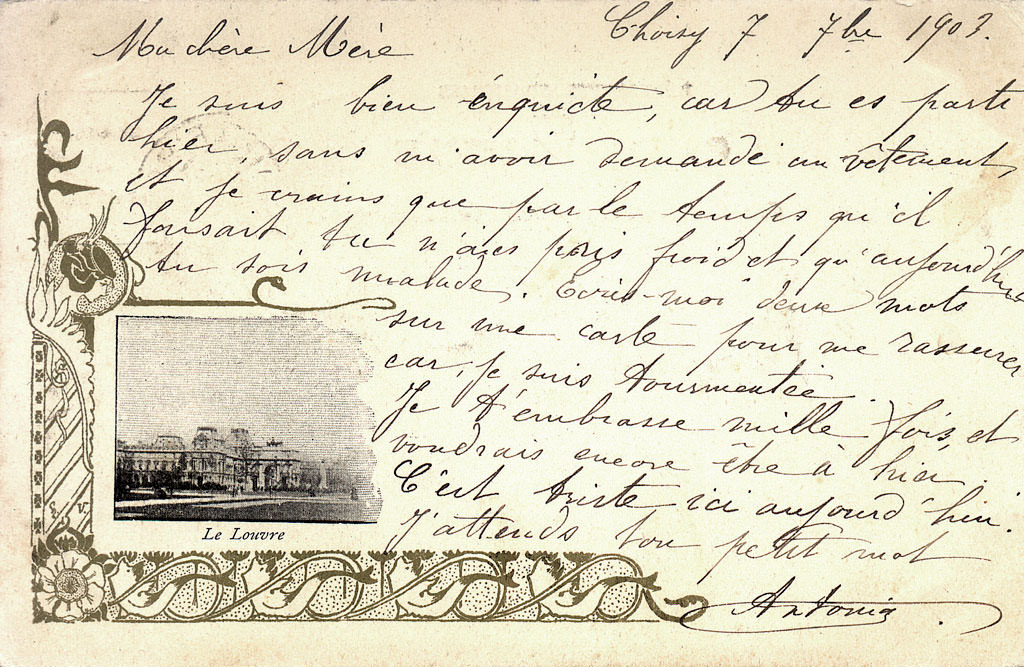 Choisy 7 7bre 1903.
Ma chère Mère
Je suis bien enquiète, car tu es parti
hier, sans m'avoir demandé un vêtement,
et je crains que par le temps qu'il
faisait tu n'aies pris froid et qu'aujourd'hui
tu sois malade. Ecris-moi deux mots
sur une carte pour me rassurer
car, je suis tourmentée.
Je t'embrasse mille fois, et
voudrais encore être à hier.
C'est triste ici aujourd'hui.
J'attends ton petit mot
Antonia
Le Louvre
S. V.